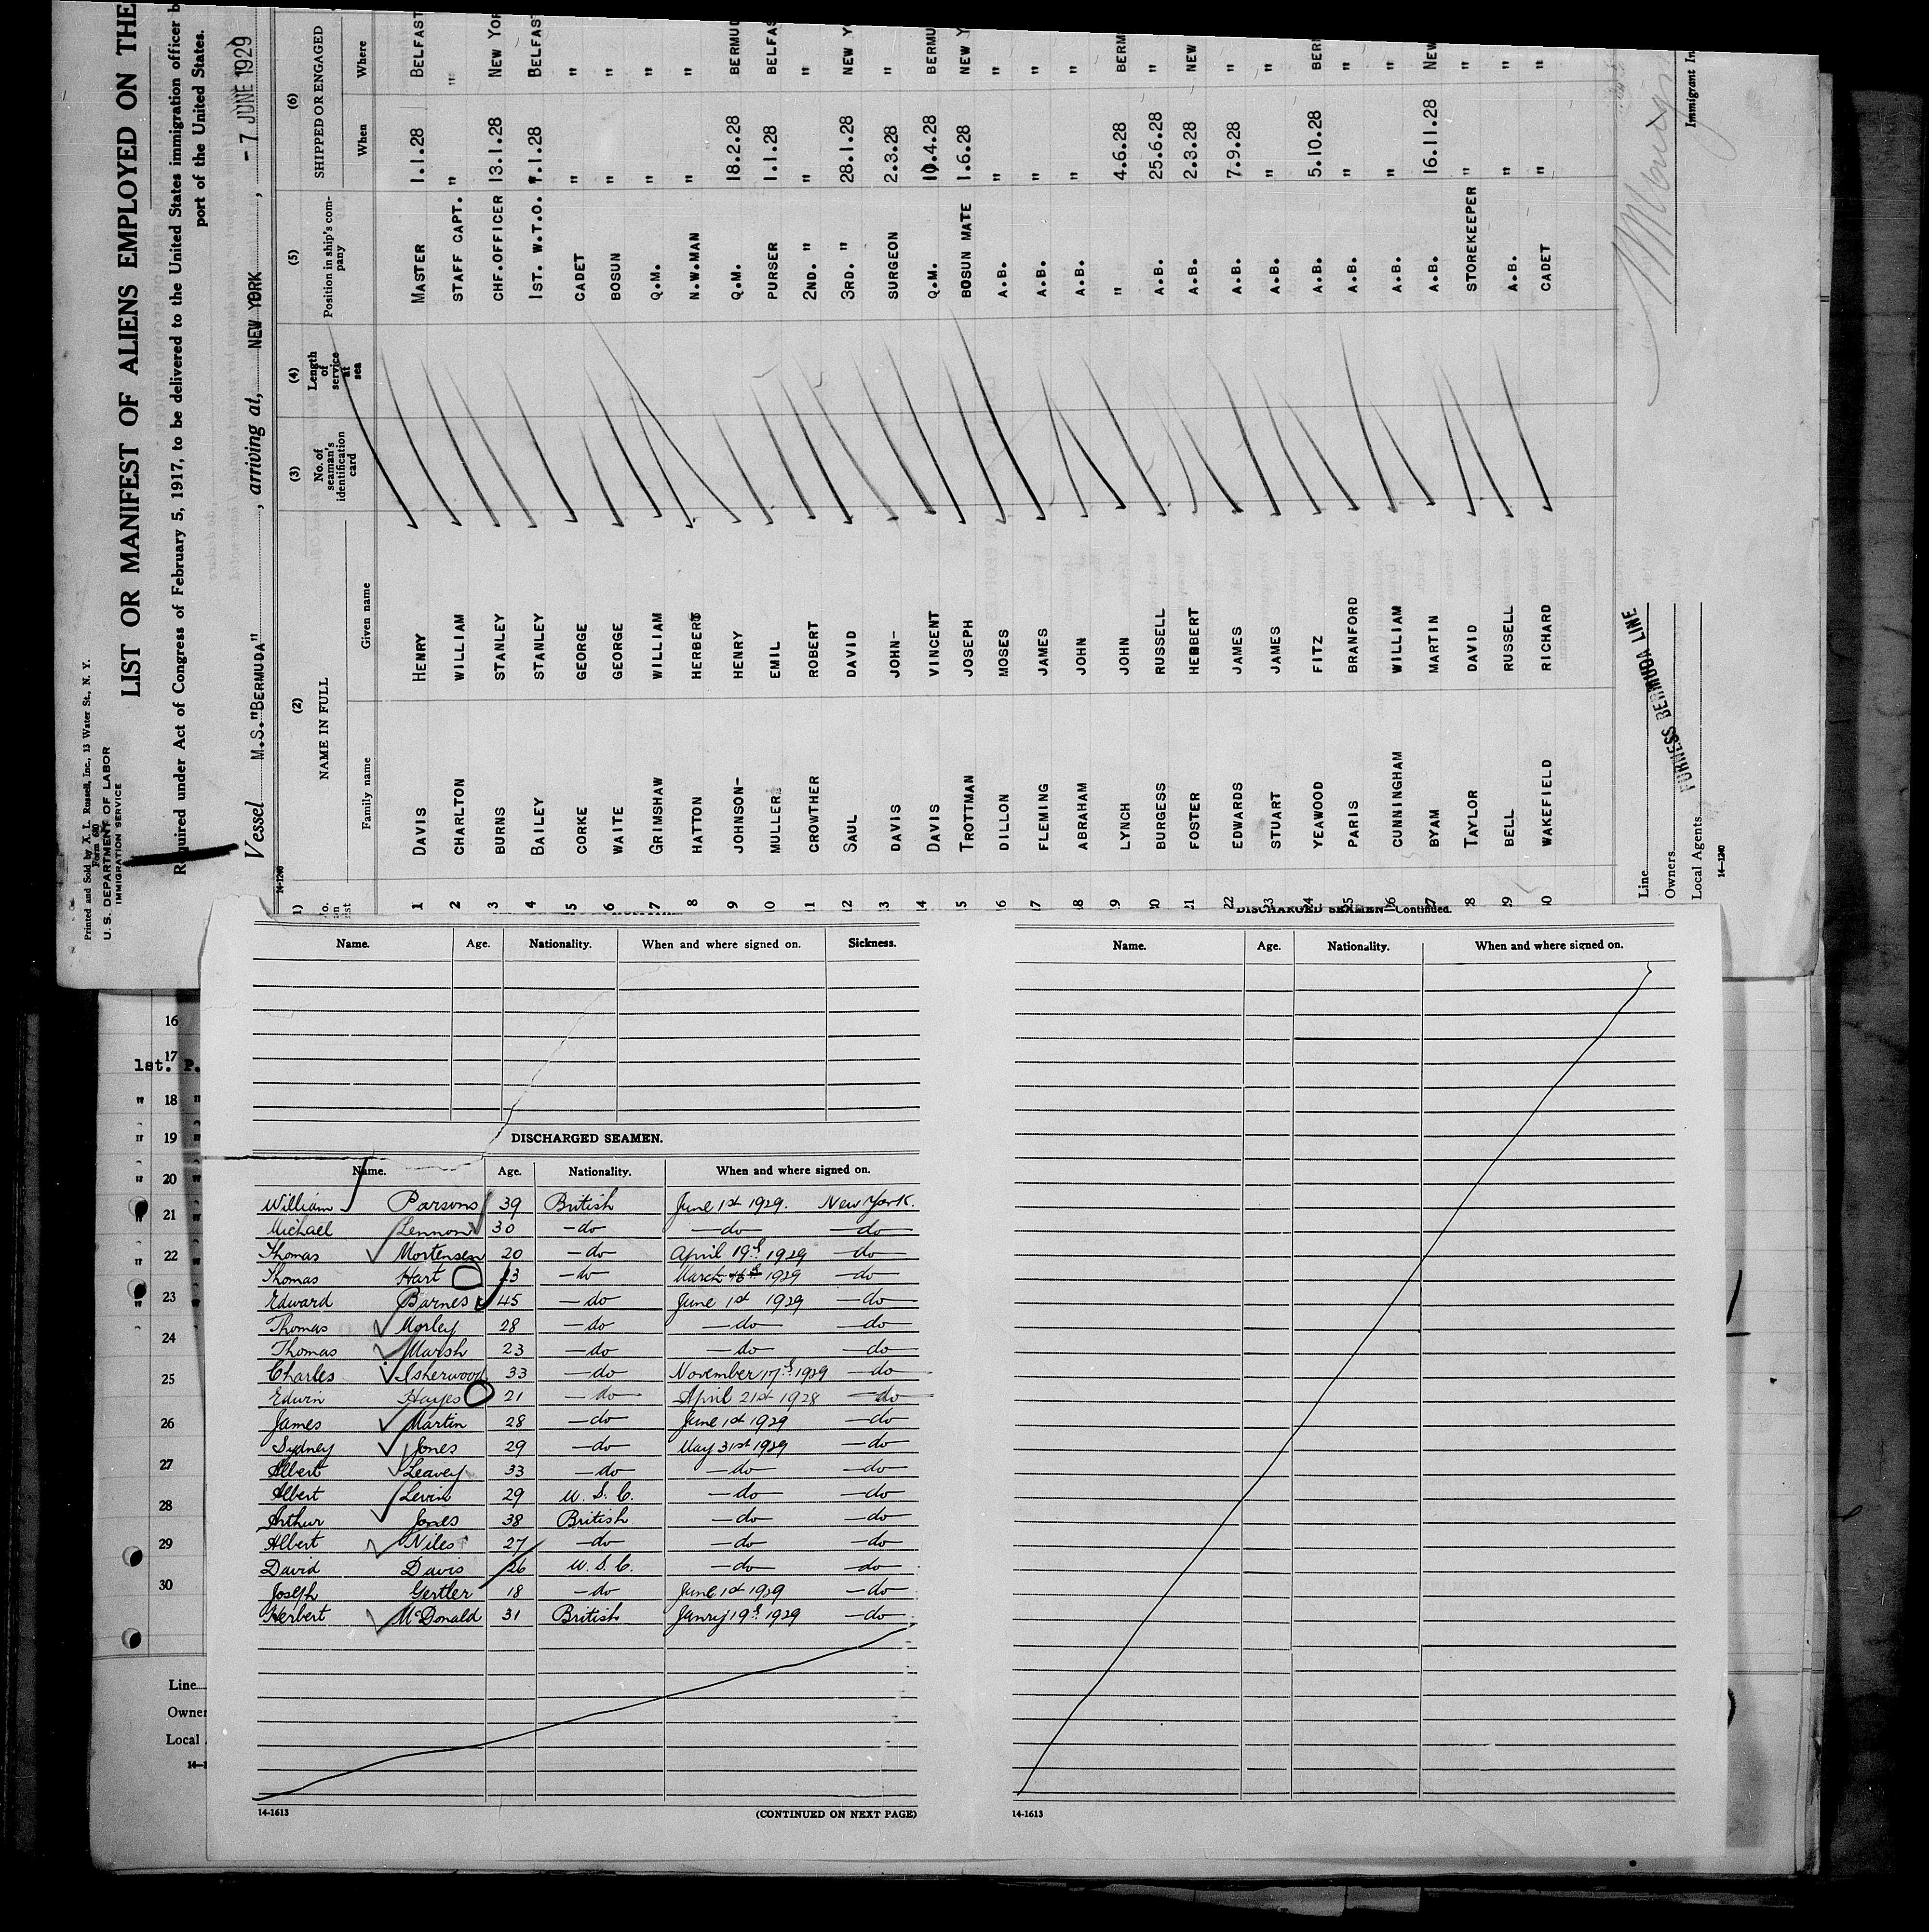 Printed and Sold by A. L. Russell, Inc., 13 Water St., N. Y.
Form 680
U. S. DEPARTMENT OF LABOR
IMMIGRATION SERVICE
LIST OR MANIFEST OF ALIENS EMPLOYED ON THE
Required under Act of Congress of February 5, 1917, to be delivered to the United States immigration officer b
port of the United States.
Vessel M.S."BERMUDA", arriving at, NEW YORK, - 7 JUNE 1929
14-1240
(2) (3) (4) (5) (6)
NAME IN FULL No. of seaman's identification card Length of service at sea Position in ship's company SHIPPED OR ENGAGED
Family name Given name When Where
1 DAVIS HENRY MASTER 1.1.28 BELFAST
2 CHARLTON WILLIAM STAFF CAPT. " "
3 BURNS STANLEY CHF.OFFICER 13.1.28 NEW YOR
4 BAILEY STANLEY 1ST. W.T.O. 1.1.28 BELFAST
5 CORKE GEORGE CADET " "
6 WAITE GEORGE BOSUN " "
7 GRIMSHAW WILLIAM Q.M. " "
8 HATTON HERBERT N.W.MAN " "
9 JOHNSON- HENRY Q.M. 18.2.28 BERMUD
10 MULLER EMIL PURSER 1.1.28 BELFAS
11 CROWTHER ROBERT 2ND. " " "
12 SAUL DAVID 3RD. " 28.1.28 NEW Y
13 DAVIS JOHN- SURGEON 2.3.28 "
14 DAVIS VINCENT Q.M. 10.4.28 BERMU
15 TROTTMAN JOSEPH BOSUN MATE 1.6.28 NEW Y
16 DILLON MOSES A.B. " "
17 FLEMING JAMES A.B. " "
18 ABRAHAM JOHN A.B. " "
19 LYNCH JOHN " 4.6.28 BERM
20 BURGESS RUSSELL A.B. 25.6.28 "
21 FOSTER HERBERT A.B. 2.3.28 NEW
22 EDWARDS JAMES A.B. 7.9.28 "
23 STUART JAMES A.B. " "
24 YEAWOOD FITZ A.B. 5.10.28 BER
25 PARIS BRANFORD A.B. " "
26 CUNNINGHAM WILLIAM A.B. " "
27 BYAM MARTIN A.B. 16.11.28 NEW
28 TAYLOR DAVID STOREKEEPER " "
29 BELL RUSSELL A.B. " "
30 WAKEFIELD RICHARD CADET " "
Line
Owners
Local Agents
FURNESS BERMUDA LINE
Immigrant In
14-1240
Name. Age. Nationality. When and where signed on. Sickness.
DISCHARGED SEAMEN.
Name. Age. Nationality. When and where signed on.
William Parsons 39 British June 1st 1929. New York.
Michael Lennon 30 -do -do -do
Thomas Mortensen 20 -do April 19th 1929 -do
Thomas Hart -do March 1929 -do
Edward Barnes 45 -do June 1st 1929 -do
Thomas Morley 28 -do -do -do
Thomas Marsh 23 -do -do -do
Charles Isherwood 33 -do November 17th 1929 -do
Edwin Hayes 21 -do April 21st 1928 -do
James Martin 28 -do June 1st 1929 -do
Sydney Jones 29 -do May 31st 1929 -do
Albert Leavey 33 -do -do -do
Albert Levin 29 U.S.C. -do -do
Arthur Jones 38 British -do -do
Albert Niles 27 -do -do -do
David Davis 26 U.S.C. -do -do
Joseph Gertler 18 -do June 1st 1929 -do
Herbert McDonald 31 British Janry 19th 1929 -do
14-1613 (CONTINUED ON NEXT PAGE)
DISCHARGED SEAMEN—Continued.
Name. Age. Nationality. When and where signed on.
14-1613
16
17
1st. P.
" 18 "
" 19 "
" 20 "
" 21 "
" 22 "
" 23 "
24
25
26
27
28
29
30
Line
Owner
Local
14-1